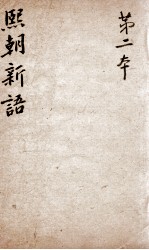 第二本
熙朝新語